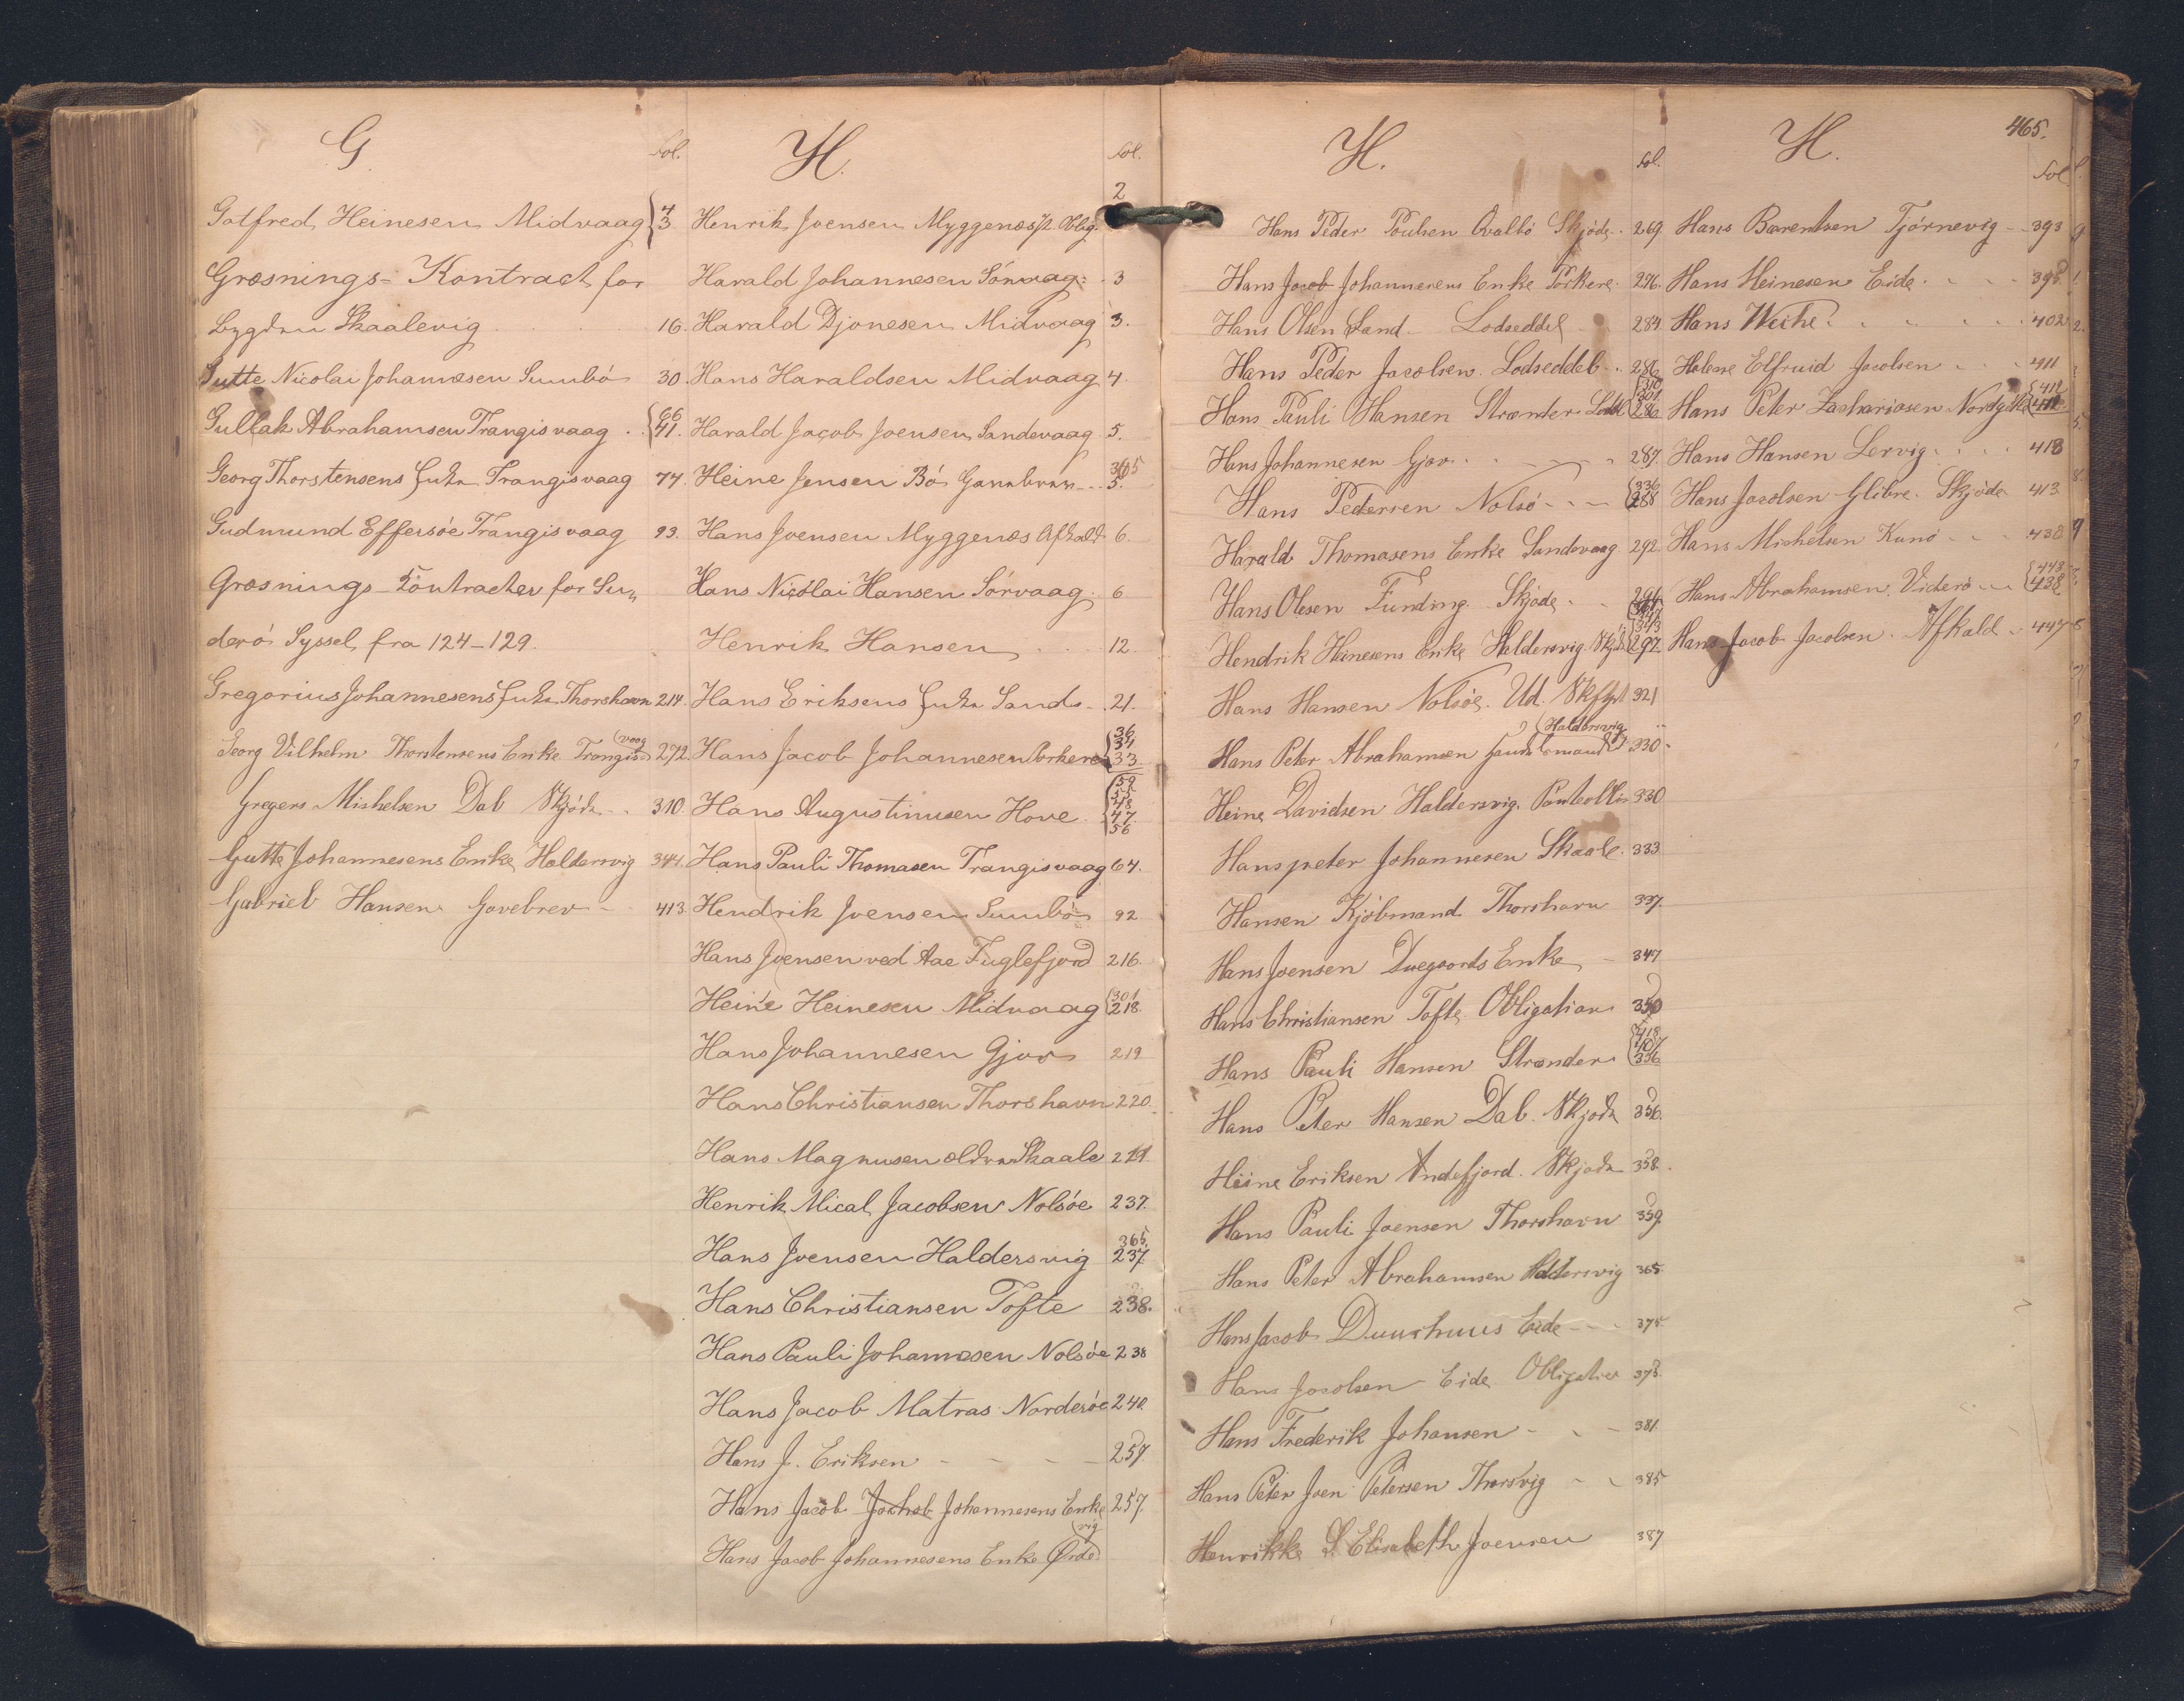 G
fol.
Gotfred Heinesen Midvaag 4 3
Græsnings-Kontract for
Bygden Skaalevig 16.
Gutte Nicolai Johannesen Sumbö 30
Gullak Abrahamsen Trangisvaag 66 41.
Georg Thorstensens Enke Trangisvaag 77
Gudmund Effersöe Trangisvaag 93.
Græsnings-Kontracter for Su„
derö Syssel, fra 124-129.
Gregorius Johannesens Enke Thorshavn 214.
Georg Vilhelm Thorstensens Enke Trangis (vaag) 272.
Gregers Michelsen Dab Skjöde 310.
Gutte Johannesens Enke Haldersvig 341.
Gabriel Hansen Gavebrev 413.
H.
fol.
Henrik Joensen Myggenæs Oblig. 2
Harald Johannesen Sörvaag 3
Harald Djonesen Midvaag 3.
Hans Haraldsen Midvaag 4.
Harald Jacob Joensen Sandevaag 5.
Heine Jensen Bö Gavebrev 365 5.
Hans Joensen Myggenæs Afkald 6.
Hans Nicolai Hansen Sörvaag 6
Henrik Hansen 12.
Hans Eriksens Enke Sand 21.
Hans Jacob Johannesen Porkere 36 34 33
Hans Augustinusen Hove 59 55 48 47. 56
Hans Pauli Thomasen Trangisvaag 64.
Hendrik Joensen Sumbö 92
Hans Joensen ved Aae Fuglefjord 216.
Heine Heinesen Midvaag 301 218.
Hans Johannesen Gjov 219
Hans Christiansen Thorshavn 220.
Hans Magnusen ældre Skaale 211.
Henrik Mical Jacobsen Nolsöe 237.
Hans Joensen Haldersvig 365. 237.
Hans Christiansen Tofte 238.
Hans Pauli Johannesen Nolsöe 238
Hans Jacob Matras Norderöe 240
Hans J. Eriksen 257.
Hans Jacob Jachob Johannesens Enke 257.
Hans Jacob Johannesens Enke Örde (vig)
H.
fol.
Hans Peder Poulsen Qvalbö Skjöde 269.
Hans Jacob Johannesens Enke Porkere 276.
Hans Olsen Sand Lodseddel 284.
Hans Peder Jacobsen Lodseddel 286
Hans Pauli Hansen Strænder 310 301. 286
Hans Johannesen Gjov 287.
Hans Pedersen Nolsö 336 288
Harald Thomasens Enke Sandevaag 292.
Hans Olesen Funding Skjöde 296
Hendrik Heinesens Enke Haldersvig Skjöde 297
Hans Hansen Nolsöe 321
Hans Peter Abrahamsen Handelsmand (Haldersvig) 330
Heine Davidsen Haldersvig 330
Hanspeter Johannesen Skaale 333
Hansen Kjöbmand Thorshavn 337.
Hans Joensen Duegaards Enke 347
Hans Christiansen Tofte Obligation 350
Hans Pauli Hansen Strænder 418. 407 356
Hans Peter Hansen Dab. Skjöde 356.
Heine Eriksen Andefjord. Skjöde 358.
Hans Pauli Joensen Thorshavn 359.
Hans Peter Abrahamsen Haldersvig 365
Hans Jacob Duurhuus Eide 375
Hans Jacobsen Eide Obligation 378
Hans Frederik Johansen 381.
Hans Peter Joen Petersen Thorsvig 385
Henrikke S. Elisabeth Joensen 387
H.
465.
fol.
Hans Barentsen Tjörnevig 393
Hans Heinesen Eide 398.
Hans Weihe 402
Helene Elfruid Jacobsen 411
Hans Peter Zachariasen 418
Hans Hansen Lervig 418
Hans Jacobsen Glibre. Skjöde 413
Hans Michelsen Kunö 438
Hans Abrahamsen Viderö 443 438
Hans Jacob Jacobsen. Afkald 447